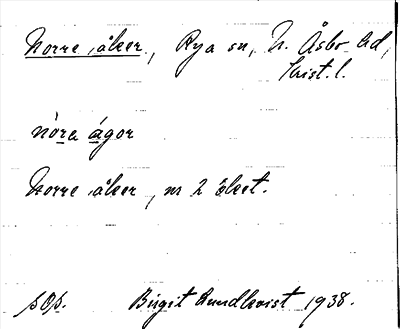 Norre åker, Rya sn, N. Åsbo hd,
Krist. l.
nòra ágor
Norre åker, nr 2 Öket.
sOp. Birgit Lundkvist 1938.